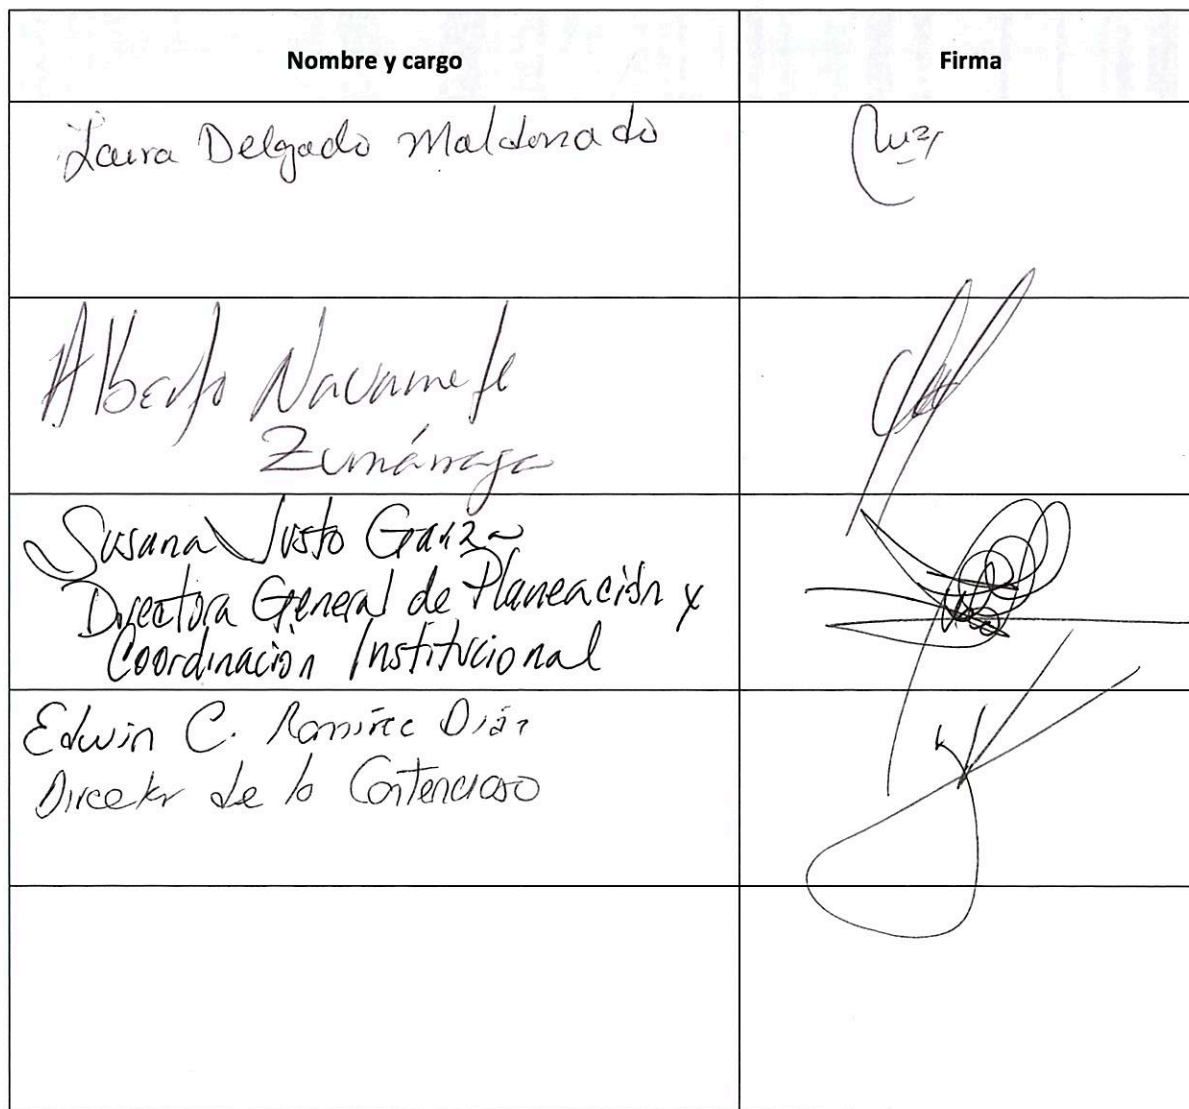 Nombre y cargo Firma
Laura Delgado Maldonado
Alberto Navarrete
Zumárraga
Susana Justo Garza
Directora General de Planeación y
Coordinación Institucional
Edwin C. Ramírez Díaz
Director de lo Contencioso